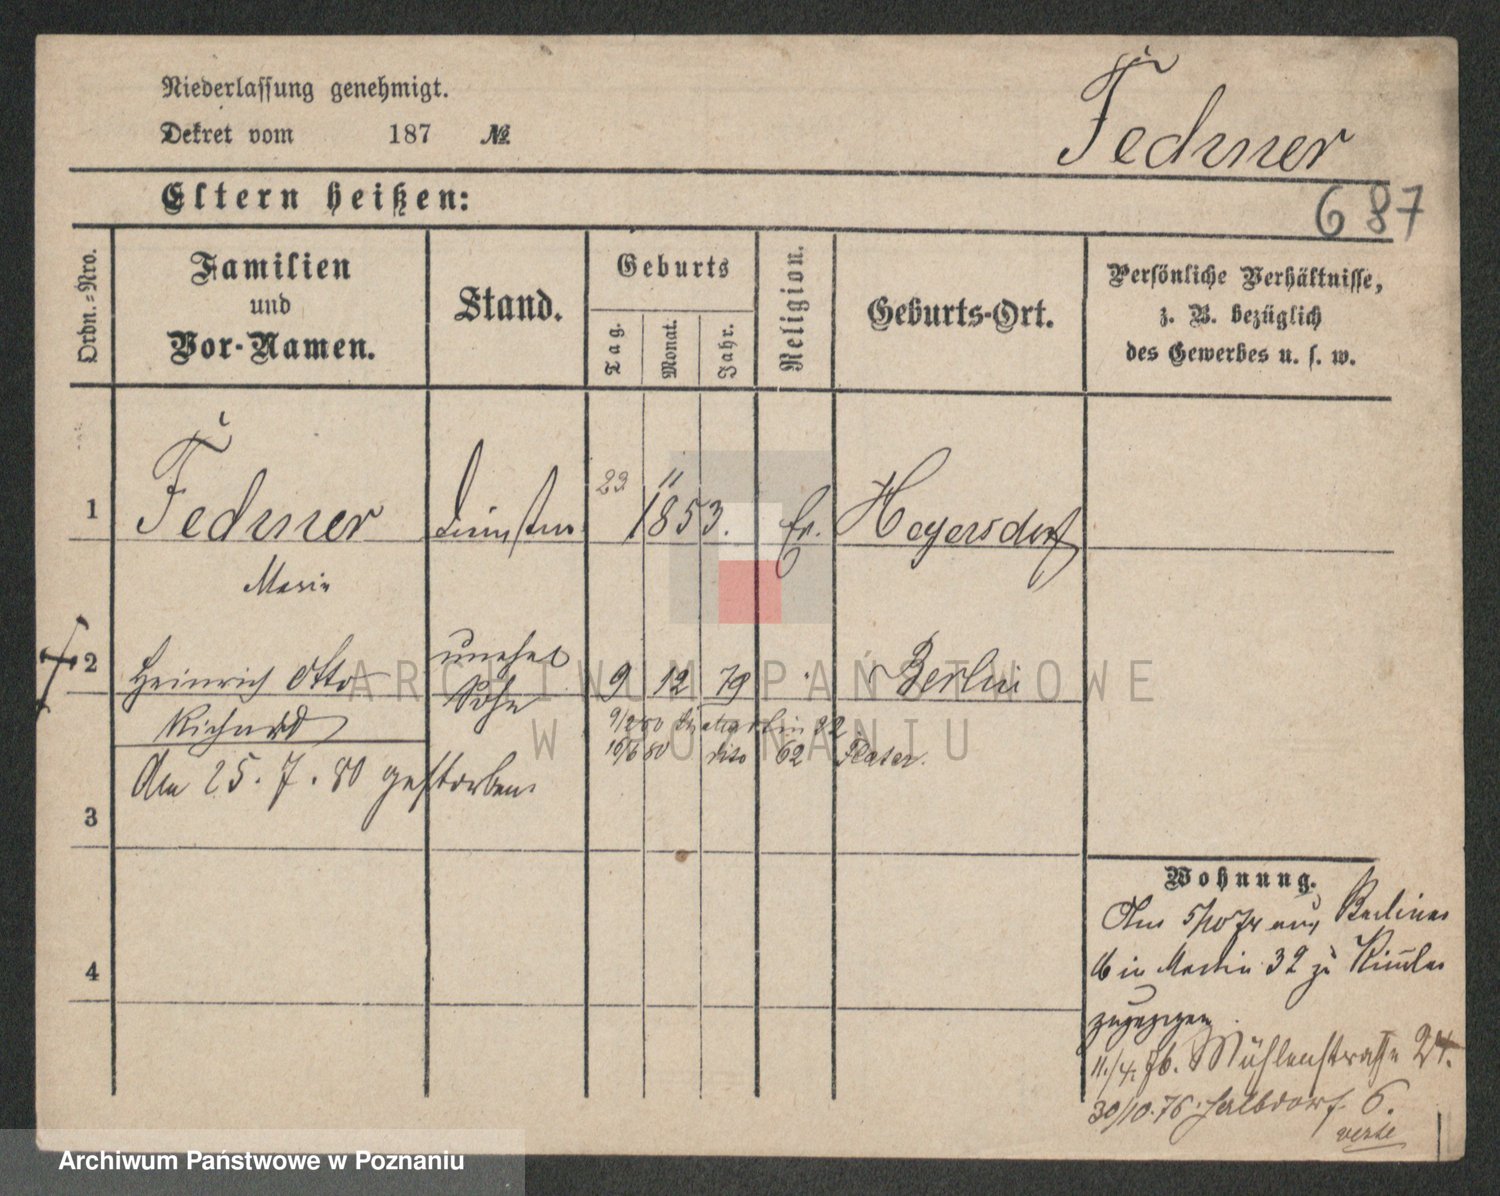 Niederlassung genehmigt.
Dekret vom 187 №
Fechner
687
Eltern heißen:
Ordn.-Nro.
Familien
und
Vor-Namen.
Stand.
Geburts
Tag.
Monat.
Jahr.
Religion.
Geburts-Ort.
Persönliche Verhältnisse,
z. B. bezüglich
des Gewerbes u. s. w.
1 Fechner 23 11 1853. Ev. Heyersdorf
Marie
2 Heinrich Otto unehel 9 12 79 Berlin
Richard Sohn
9/2 80 32
16/6 80 dito 62
Am 25. 7. 80 gestorben
3
4
Wohnung.
Am 5/10 74 aus Berliner
Martin 32 zu
zugezogen.
11./4. 76. Mühlenstraße 24.
30/10. 76. Halbdorf. 6.
ARCHIWUM PAŃSTWOWE
W POZNANIU
Archiwum Państwowe w Poznaniu